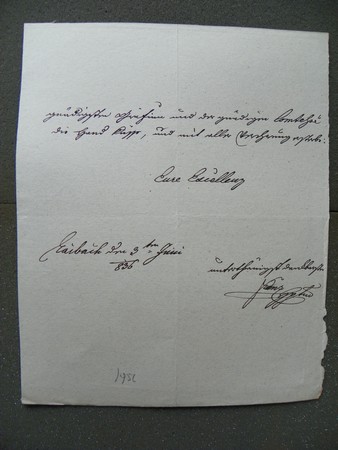 gnädigsten Gräfinn und der gnädigen Comtesse
die Hand küsse, und mit aller Verehrung ersterbe.
Eure Excellenz
Laibach den 3ten Juni
836
unterthänigst dankbarster